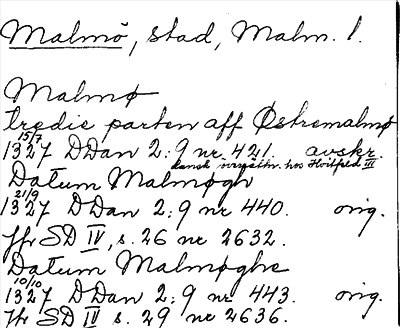 Malmö, stad, Malm. 1.
Malmø
tredie parten aff Østremalmø
15/7
1327 DDan 2:9 nr 421. avskr.
dansk översättn. hos Hvitfeld III
Datum Malmøgh
21/9
1327 DDan 2:9 nr 440. orig.
Jfr SD IV, s. 26 nr 2632.
Datum Malmøghe
10/10
1327 DDan 2:9 nr 443. orig.
Jfr SD IV, s. 29 nr 2636.